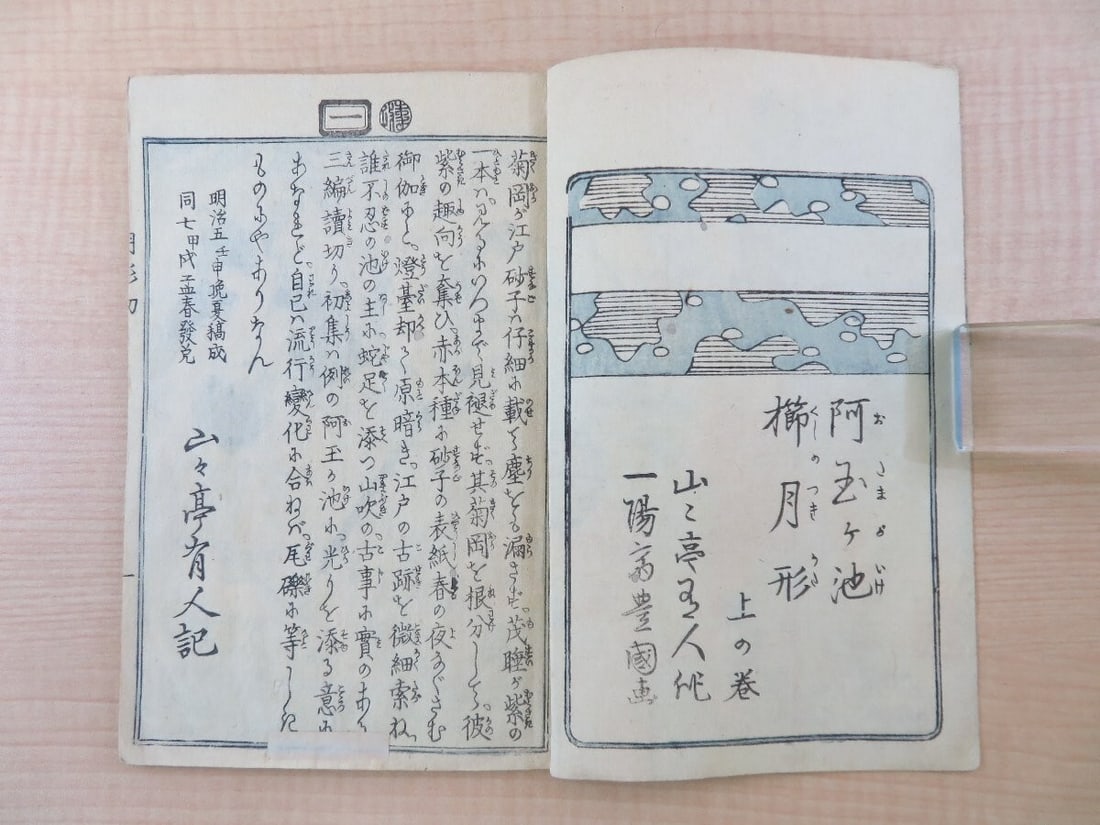 阿玉ヶ池
櫛月形
上の巻
山々亭有人作
一陽斎豊國画
一
菊岡が江戸砂子ハ仔細に載て塵をも漏さず茂睡が紫の
一本ハ
見褪せず其菊岡を根分して彼
紫の趣向を奪ひ赤本種に砂子の表紙春の夜
御伽にと燈臺却て原暗き江戸の古跡を微細索ね
誰不忍の池の主に蛇足を添つ山吹の古事に實の
三編讀切り初集ハ例の阿玉が池に光りを添る意に
あなれど自己ハ流行變化に合ねバ瓦礫に等しき
ものにやありなん
明治五壬申晩夏稿成
同七甲戌孟春發兌
山々亭有人記